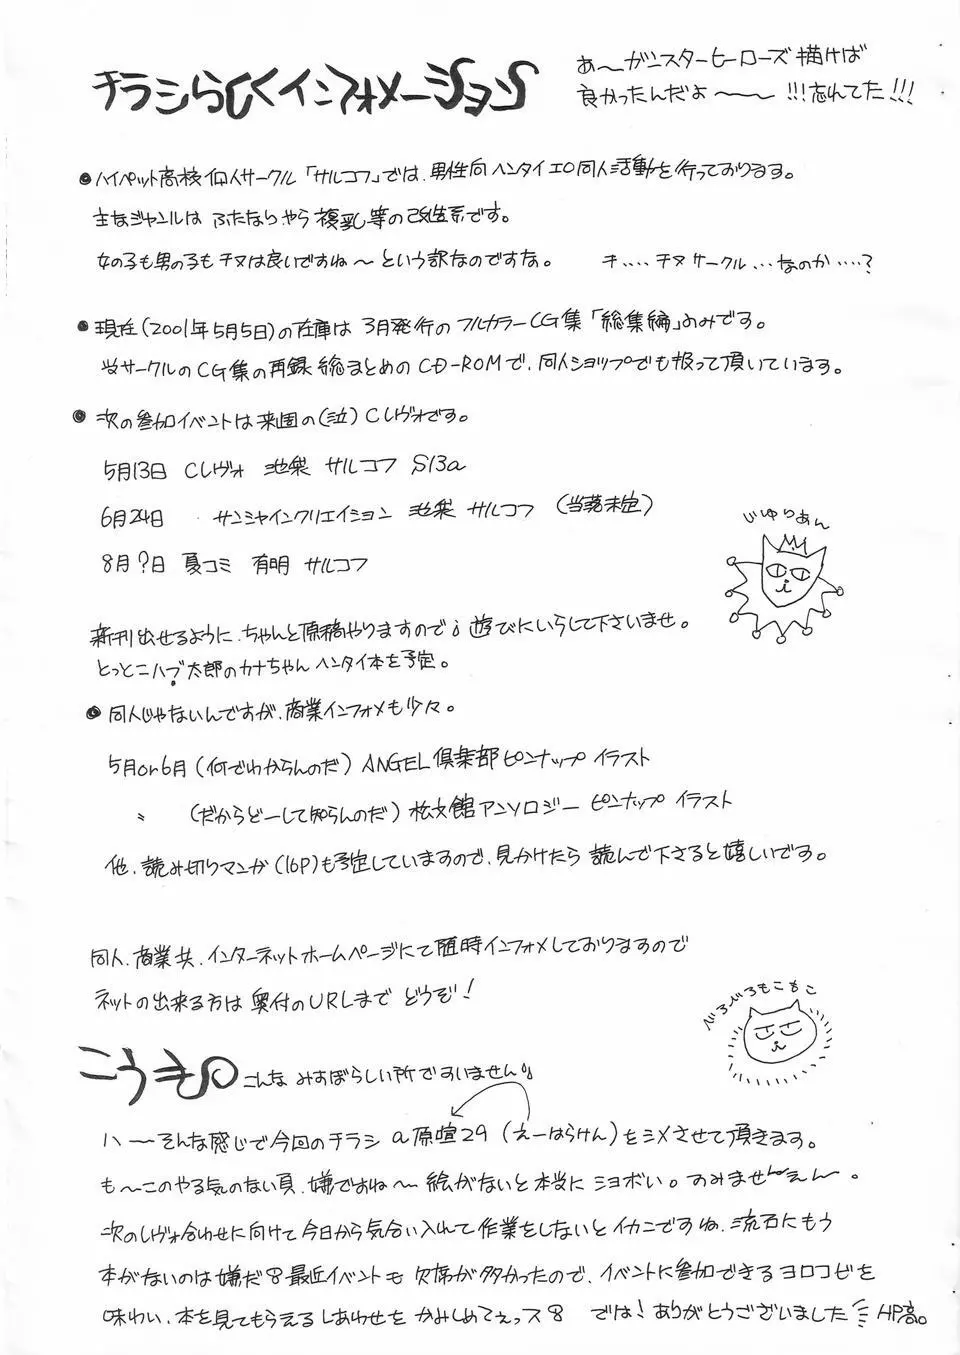 チラシらしくインフォメーション
あ〜ガニスターヒーローズ描けば
良かったんだよ〜〜!!!忘れてた!!!
●ハイペット高校個人サークル「サルコフ」では、男性向ヘンタイエロ同人活動を行っております。
主なジャンルは ふたなりやら複乳等の改造系です。
女の子も男の子もチヌは良いですね〜という訳なのですな。 チ‥‥チヌサークル…なのか‥‥?
●現在(2001年5月5日)の在庫は3月発行のフルカラーCG集「総集編」のみです。
当サークルのCG集の再録総まとめのCD-ROMで、同人ショップでも扱って頂いています。
●次の参加イベントは来週の(泣)Cレヴォです。
5月13日 Cレヴォ 池袋 サルコフ S13a
6月24日 サンシャインクリエイション 池袋 サルコフ (当落未定)
8月?日 夏コミ 有明 サルコフ
じゆりあん
新刊出せるように、ちゃんと原稿やりますので、遊びにいらして下さいませ。
とっとこハブ太郎のカナちゃん ヘンタイ本を予定。
●同人じゃないんですが、商業インフォメも少々。
5月or6月(何でわからんのだ)ANGEL倶楽部ピンナップ イラスト
〃 (だからどーして知らんのだ)松文館アンソロジー ピンナップ イラスト
他、読み切りマンガ(16P)も予定していますので、見かけたら 読んで下さると嬉しいです。
同人、商業共、インターネットホームページにて随時インフォメしておりますので
ネットの出来る方は奥付のURLまで どうぞ!
べろべろもこもこ
こうき こんな みすぼらしい所ですいません
ハ〜そんな感じで今回のチラシ a原喧29(えーはらけん)をシメさせて頂きます。
も〜このやる気のない頁、嫌ですね〜 絵がないと本当に ショボい。すみませーんえん〜。
次のレヴォ合わせに向けて今日から気合い入れて作業をしないとイカンですね、流石にもう
本がないのは嫌だ 最近イベントも 欠席が多かったので、イベントに参加できるヨロコビを
味わい、本を見てもらえるしあわせを かみしめてえっス では!ありがとうございました HP高。